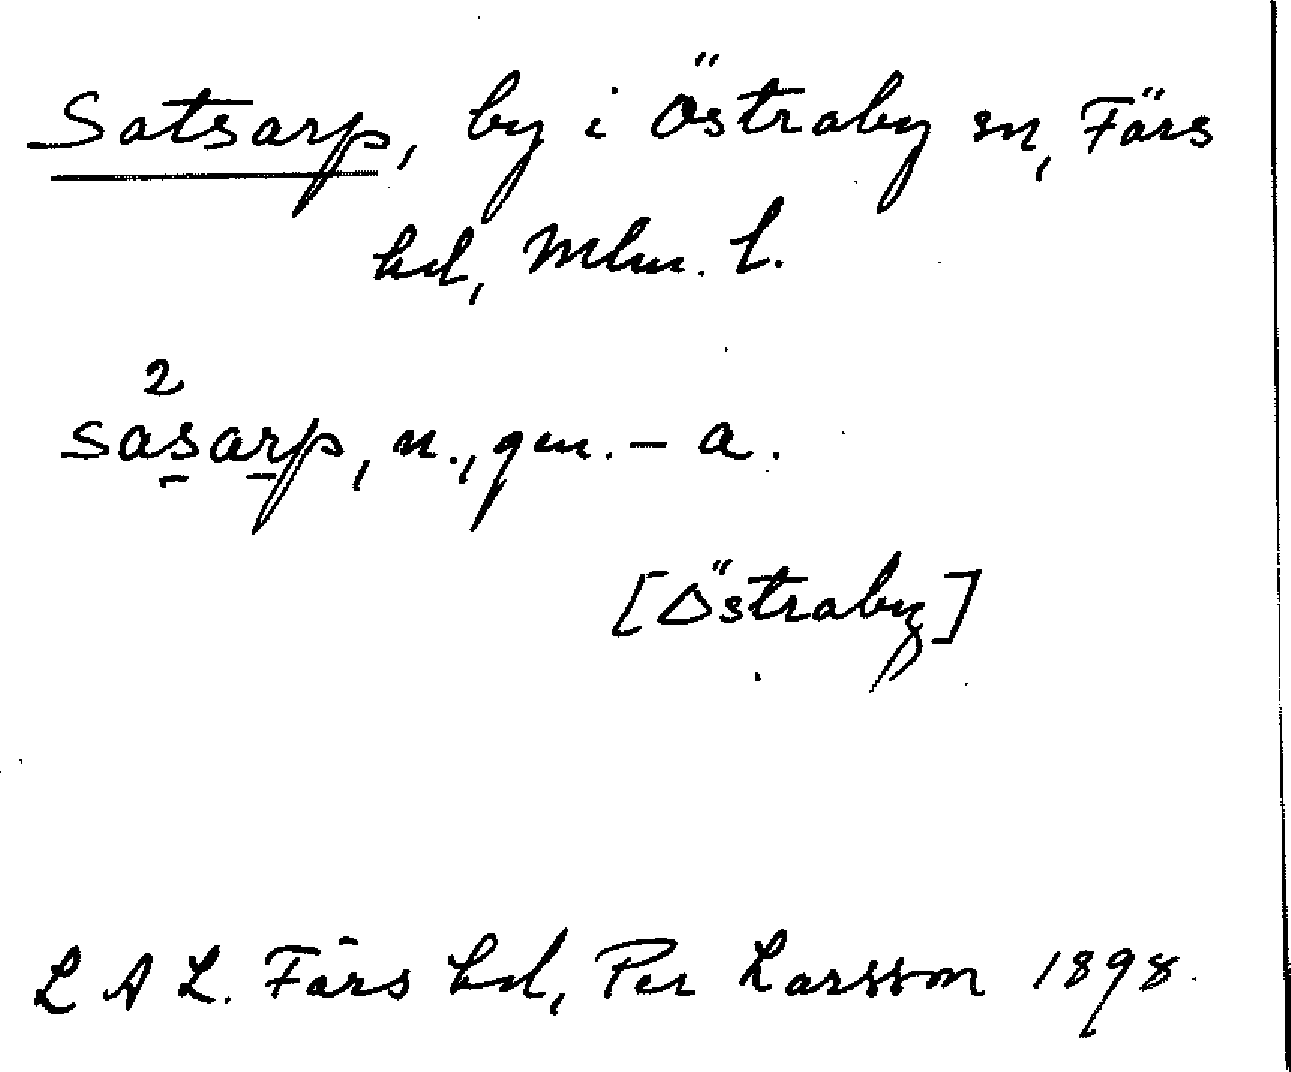 Satsarp, by i Östraby sn, Färs
hd, Mlm. l.
2
sasarp, n., gm. – a.
[Östraby]
L A L. Färs hd, Per Larsson 1898.